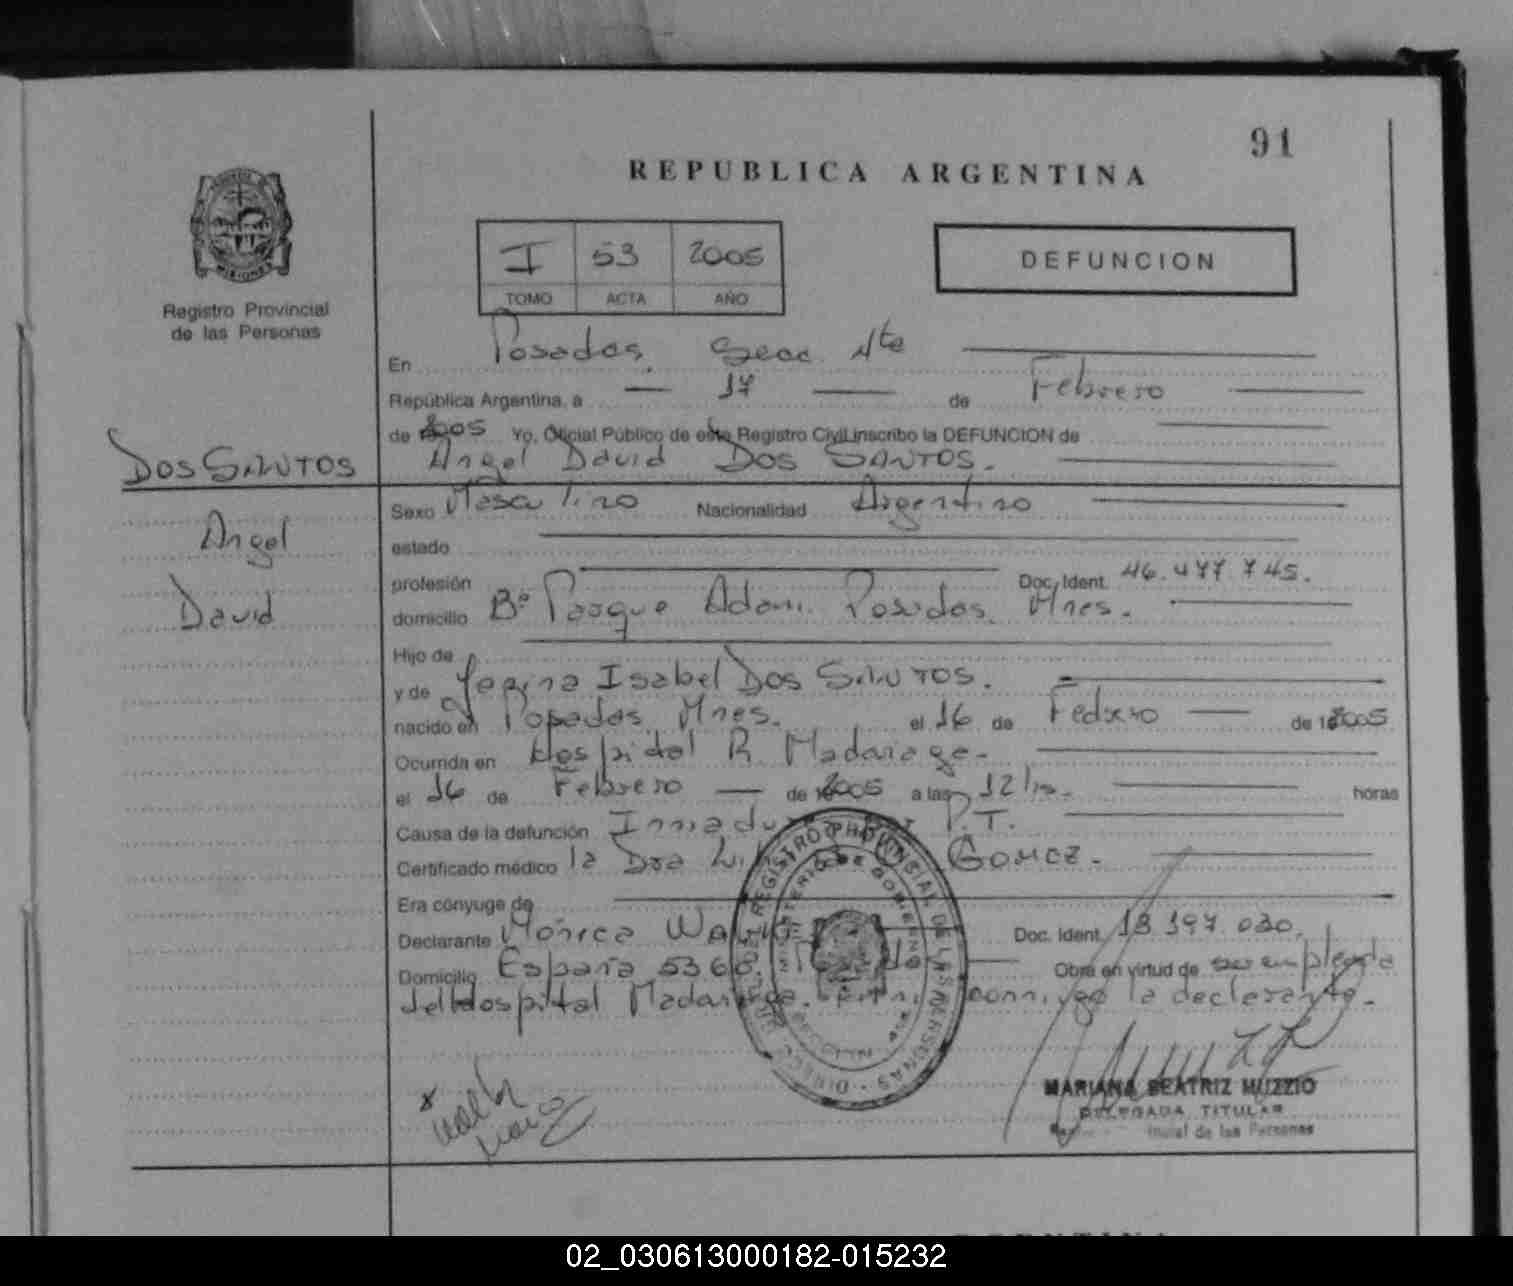 91
REPUBLICA ARGENTINA
MISIONES
Registro Provincial
de las Personas
I 53 2005
TOMO ACTA AÑO
DEFUNCION
En Posadas, Secc. 4ta
República Argentina, a 17 de Febrero
de 2005 Yo, Oficial Público de este Registro Civil inscribo la DEFUNCION de
Angel David DOS SANTOS.
DOS SANTOS
Angel
David
Sexo Masculino Nacionalidad Argentino
estado
profesión Doc. Ident. 46.477.745.
domicilio Bº Parque Adam. Posadas. Mnes.
Hijo de
y de Isabel DOS SANTOS.
nacido en Posadas Mnes. el 16 de Febrero de 2005
Ocurrida en Hospital R. Madariaga.
el 16 de Febrero de 2005 a las 12 hs. horas
Causa de la defunción P.T.
Certificado médico la Dra GOMEZ.
Era cónyuge de
Declarante Mónica Doc. Ident. 13.197.030.
Domicilio España 5368. Obra en virtud de ser empleada
del Hospital Madariaga. conmigo la declarante.
MARIANA BEATRIZ MUZZIO
DELEGADA TITULAR
de las Personas
02_030613000182-015232